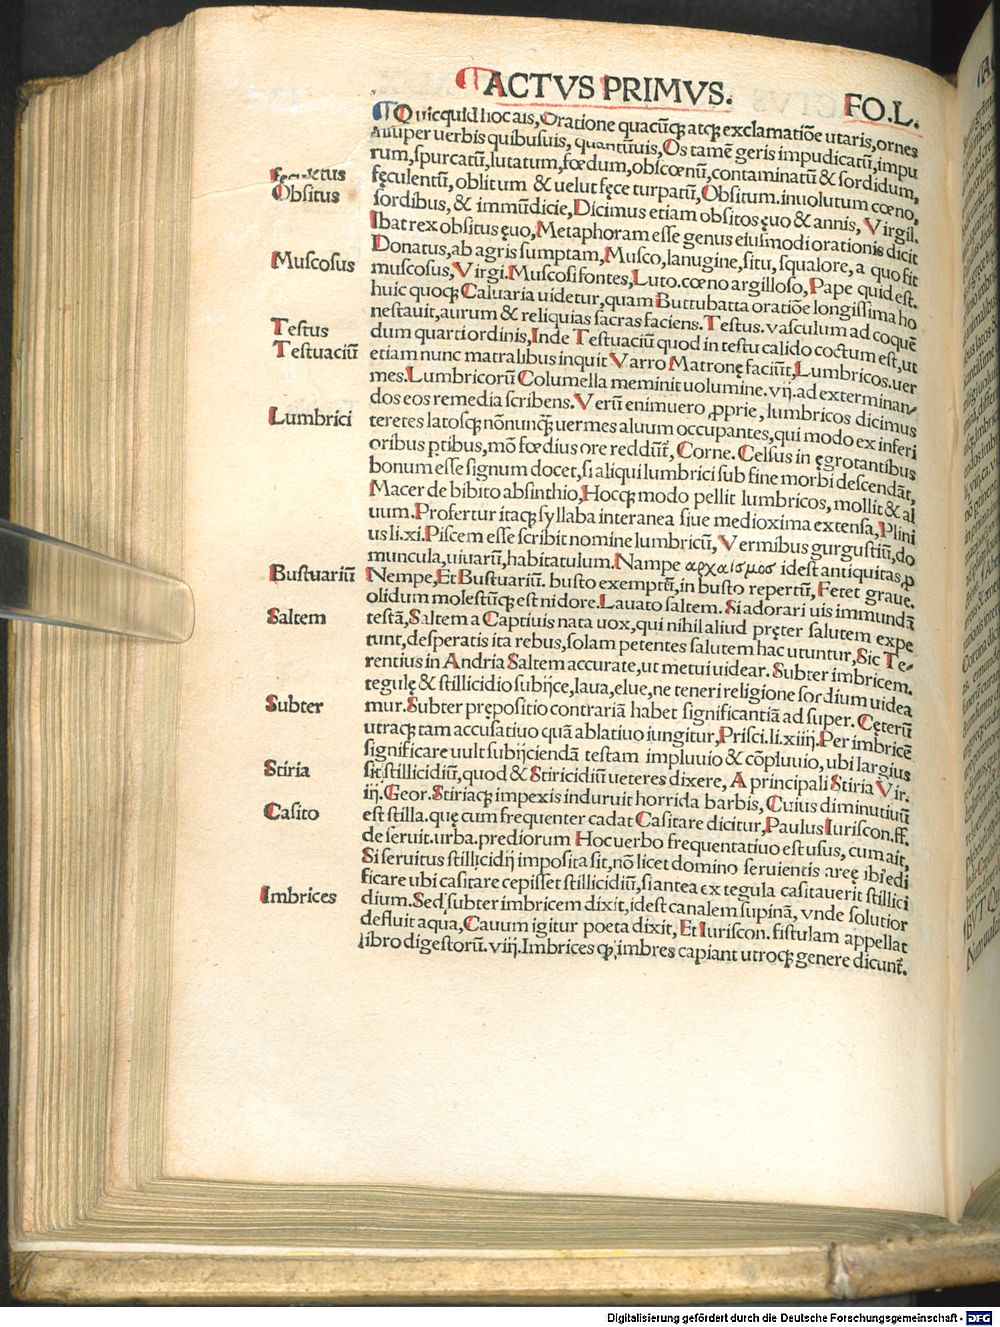 ¶ ACTVS PRIMVS. FO.L.
¶ Quicquid hoc ais, Oratione quacūqꝫ atqꝫ exclamatiōe utaris, ornes
Insuper uerbis quibusuis, quantūuis, Os tamē geris impudicatū, impu
rum, spurcatū, lutatum, fœdum, obscœnū, contaminatū & sordidum,
fęculentū, oblitum & uelut fęce turpatū, Obsitum. inuolutum cœno,
sordibus, & immūdicie, Dicimus etiam obsitos ęuo & annis, Virgil.
Ibat rex obsitus ęuo, Metaphoram esse genus eiusmodi orationis dicit
Donatus, ab agris sumptam, Musco, lanugine, situ, squalore, a quo fit
muscosus, Virgi. Muscosi fontes, Luto. cœno argilloso, Pape quid est.
huic quoqꝫ Caluaria uidetur, quam Buttubatta oratiōe longissima ho
nestauit, aurum & reliquias sacras faciens. Testus. vasculum ad coquē
dum quarti ordinis, Inde Testuaciū quod in testu calido coctum est, ut
etiam nunc matralibus inquit Varro Matronę faciūt, Lumbricos. uer
mes. Lumbricorū Columella meminit uolumine. vij. ad exterminan⸗
dos eos remedia scribens. Verū enimuero ꝓprie, lumbricos dicimus
teretes latosqꝫ nōnunqꝫ uermes aluum occupantes, qui modo ex inferi
oribus ꝑtibus, mō fœdius ore reddūt̄, Corne. Celsus in ęgrotantibus
bonum esse signum docet, si aliqui lumbrici sub fine morbi descendāt,
Macer de bibito absinthio, Hocqꝫ modo pellit lumbricos, mollit & al
uum. Profertur itaqꝫ syllaba interanea siue medioxima extensa, Plini
us li. xi. Piscem esse scribit nomine lumbricū, Vermibus gurgustiū, do
muncula, uiuarū, habitatulum. Nampe αρχαισμοσ idest antiquitas, ꝓ
Nempe, Et Bustuariū. busto exemptū, in busto repertū, Fetet graue.
olidum molestūqꝫ est nidore. Lauato saltem. Si adorari uis immundā
testā, Saltem a Captiuis nata uox, qui nihil aliud pręter salutem expe
tunt, desperatis ita rebus, solam petentes salutem hac utuntur, Sic Te⸗
rentius in Andria Saltem accurate, ut metui uidear. Subter imbricem.
tegulę & stillicidio subijce, laua, elue, ne teneri religione sordium uidea
mur. Subter prępositio contrariā habet significantiā ad super. Cęterū
utraqꝫ tam accusatiuo quā ablatiuo iungitur, Prisci. li. xiiij. Per imbricē
significare uult subijciendā testam impluuio & cōpluuio, ubi largius
sit stillicidiū, quod & Stiricidiū ueteres dixere, A principali Stiria Vir.
iij. Geor. Stiriaqꝫ impexis induruit horrida barbis, Cuius diminutiuū
est stilla. quę cum frequenter cadat Casitare dicitur, Paulus Iuriscon. ff.
de seruit. urba. prediorum Hoc uerbo frequentatiuo est usus, cum ait,
Si seruitus stillicidij imposita sit, nō licet domino seruientis areę ibi ędi
ficare ubi casitare cepisset stillicidiū, si antea ex tegula casitauerit stillici
dium. Sed subter imbricem dixit, idest canalem supinā, vnde solutior
defluit aqua, Cauum igitur poeta dixit, Et Iuriscon. fistulam appellat
libro digestorū. viij. Imbrices qꝫ imbres capiant utroqꝫ genere dicunt̄.
Obsitus
Muscosus
Testus
Testuaciū
Lumbrici
Bustuariū
Saltem
Subter
Stiria
Casito
Imbrices
Digitalisierung gefördert durch die Deutsche Forschungsgemeinschaft - DFG